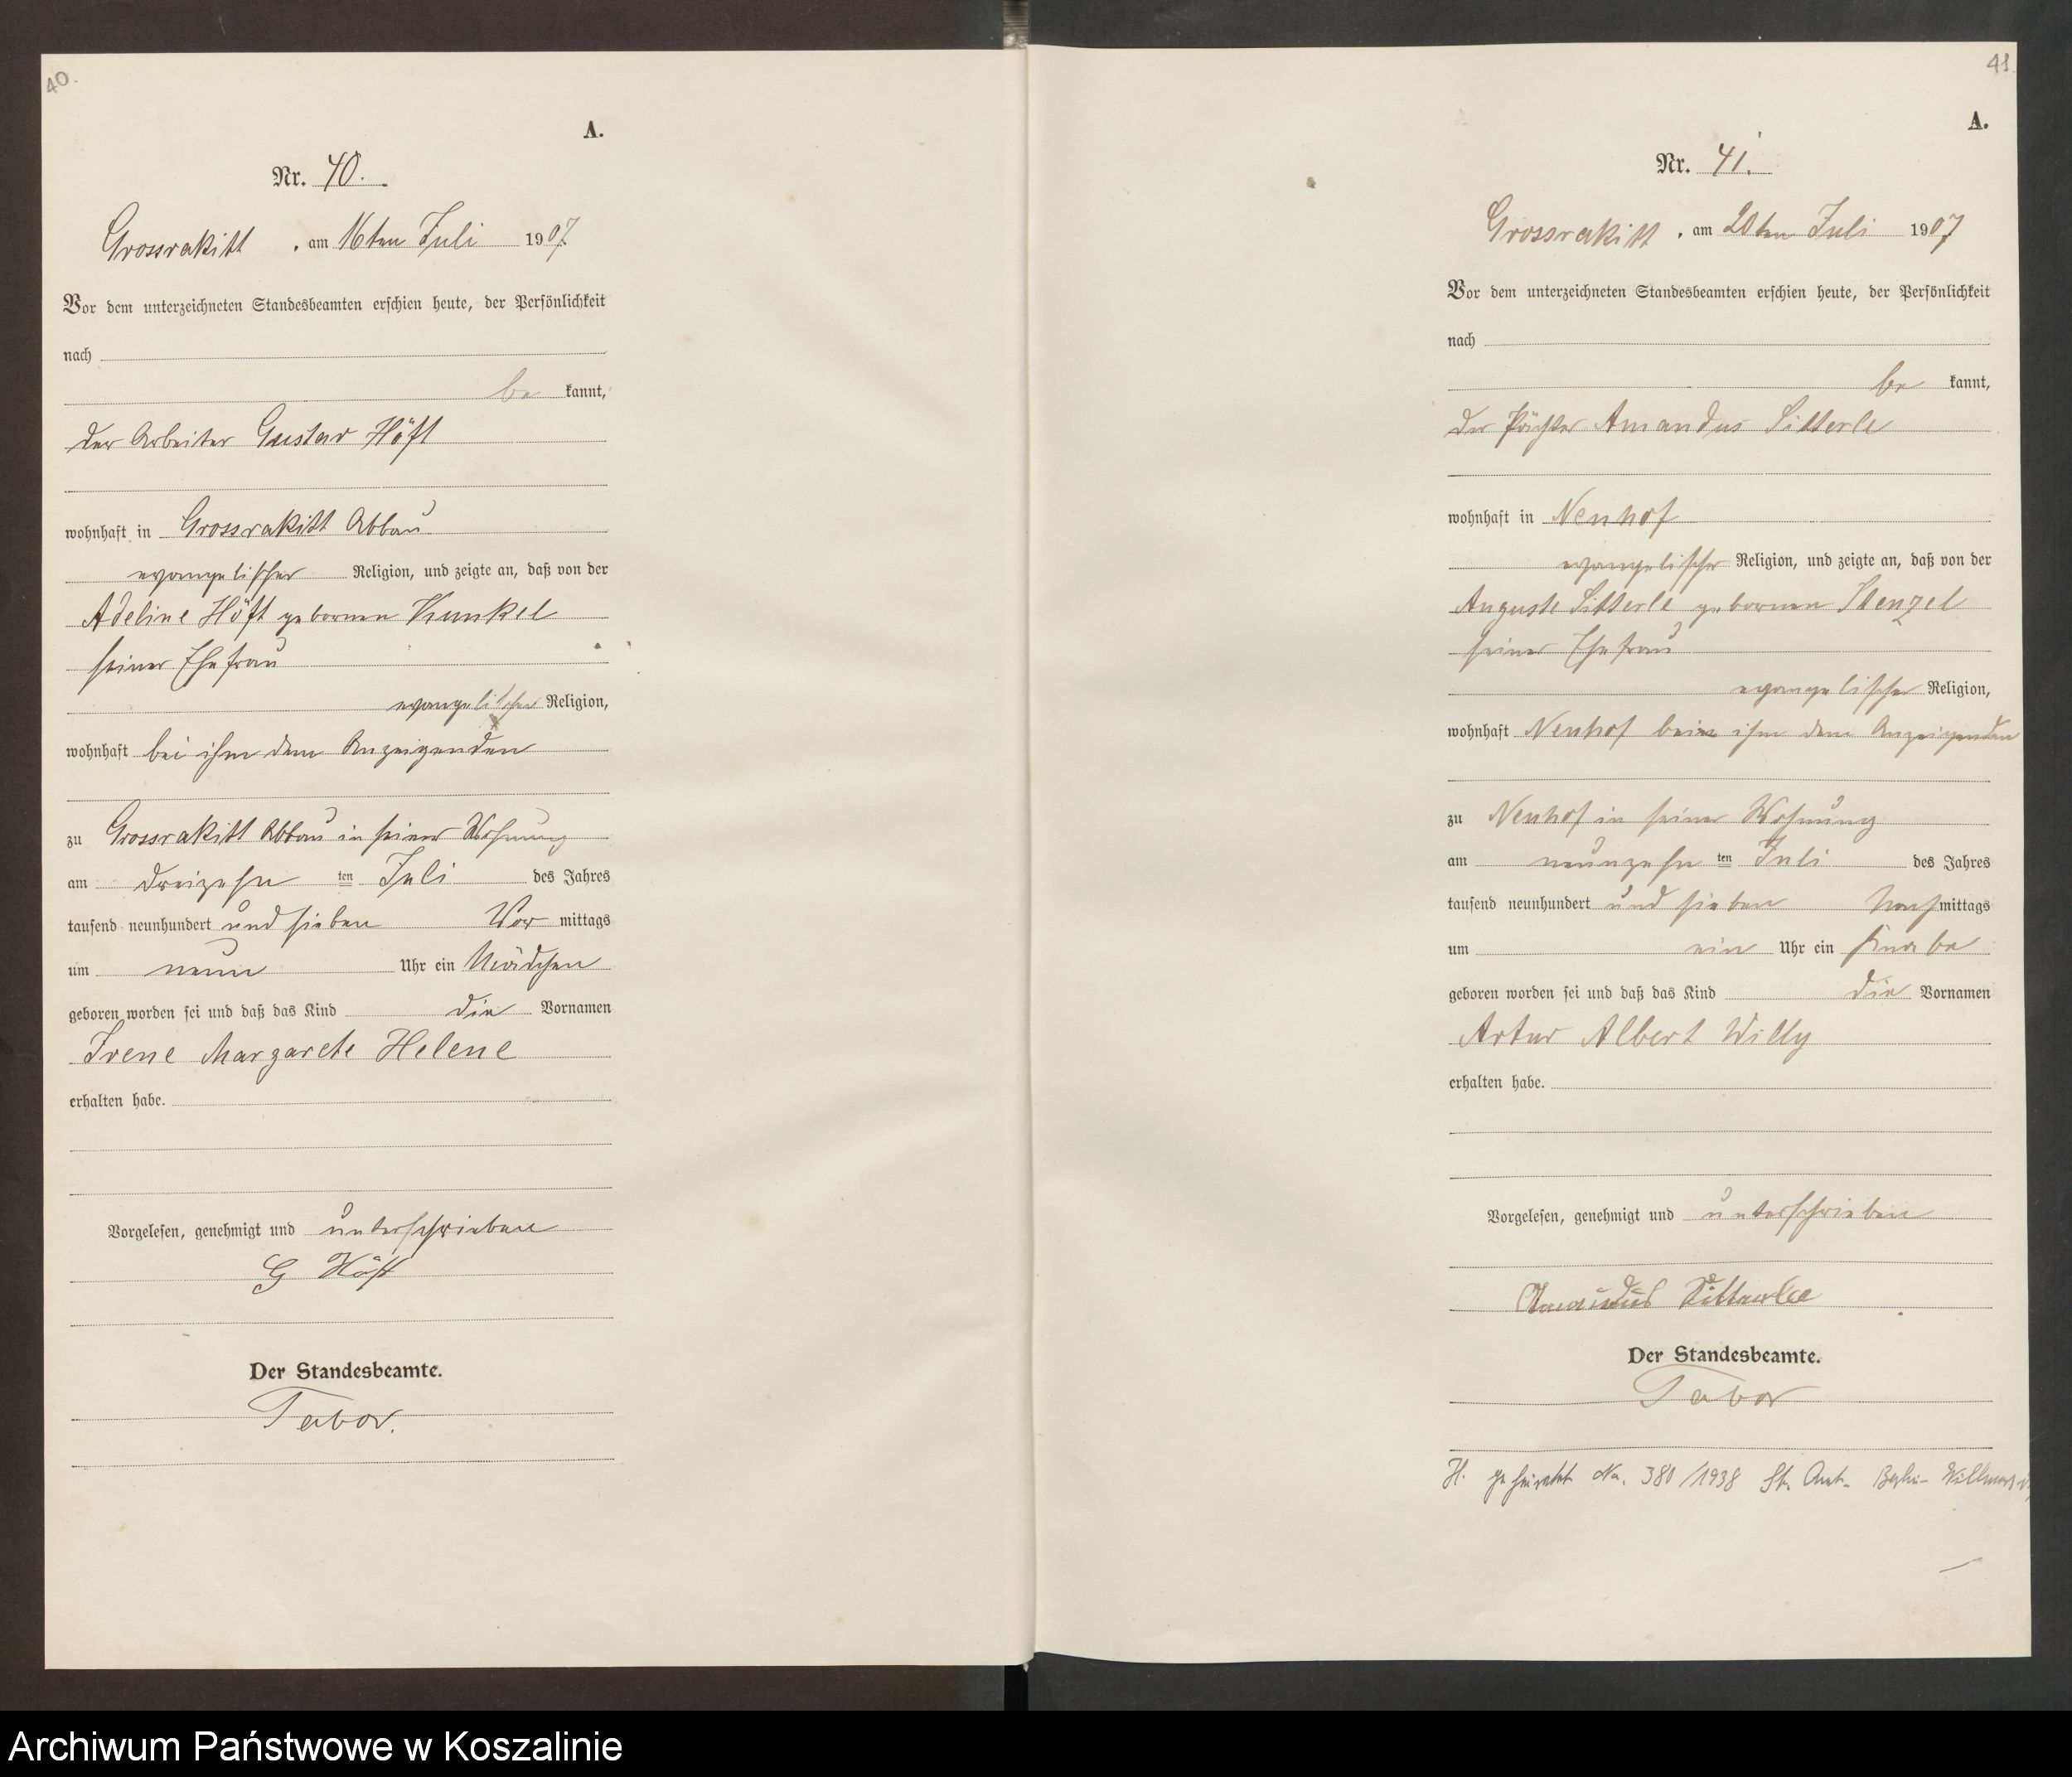 40.
A.
Nr. 40.
Grossrakitt, am 16ten Juli 1907.
Vor dem unterzeichneten Standesbeamten erschien heute, der Persönlichkeit
nach
be kannt,
der Arbeiter Gustav Höft
wohnhaft in Grossrakitt Abbau
evangelischer Religion, und zeigte an, daß von der
Adeline Höft gebornen Kunkel
seiner Ehefrau
evangelischer Religion,
wohnhaft bei ihm dem Anzeigenden
zu Grossrakitt Abbau in seiner Wohnung
am dreizehn ten Juli des Jahres
tausend neunhundert und sieben Vor mittags
um neun Uhr ein Mädchen
geboren worden sei und daß das Kind die Vornamen
Irene Margarete Helene
erhalten habe.
Vorgelesen, genehmigt und unterschrieben
G Höft
Der Standesbeamte.
Tabor.
41
A.
Nr. 41.
Grossrakitt, am 20ten Juli 1907
Vor dem unterzeichneten Standesbeamten erschien heute, der Persönlichkeit
nach
be kannt,
der Pächter Amandus Sitterle
wohnhaft in Neuhof
evangelischer Religion, und zeigte an, daß von der
Auguste Sitterle gebornen Stenzel
seiner Ehefrau
evangelischer Religion,
wohnhaft Neuhof bei ihm dem Anzeigenden
zu Neuhof in seiner Wohnung
am neunzehn ten Juli des Jahres
tausend neunhundert und sieben Nach mittags
um ein Uhr ein Knabe
geboren worden sei und daß das Kind die Vornamen
Artur Albert Willy
erhalten habe.
Vorgelesen, genehmigt und unterschrieben
Amandus Sitterle
Der Standesbeamte.
Tabor
H. geheiratet No. 380/1938 St. Amt- Berlin-
Archiwum Państwowe w Koszalinie